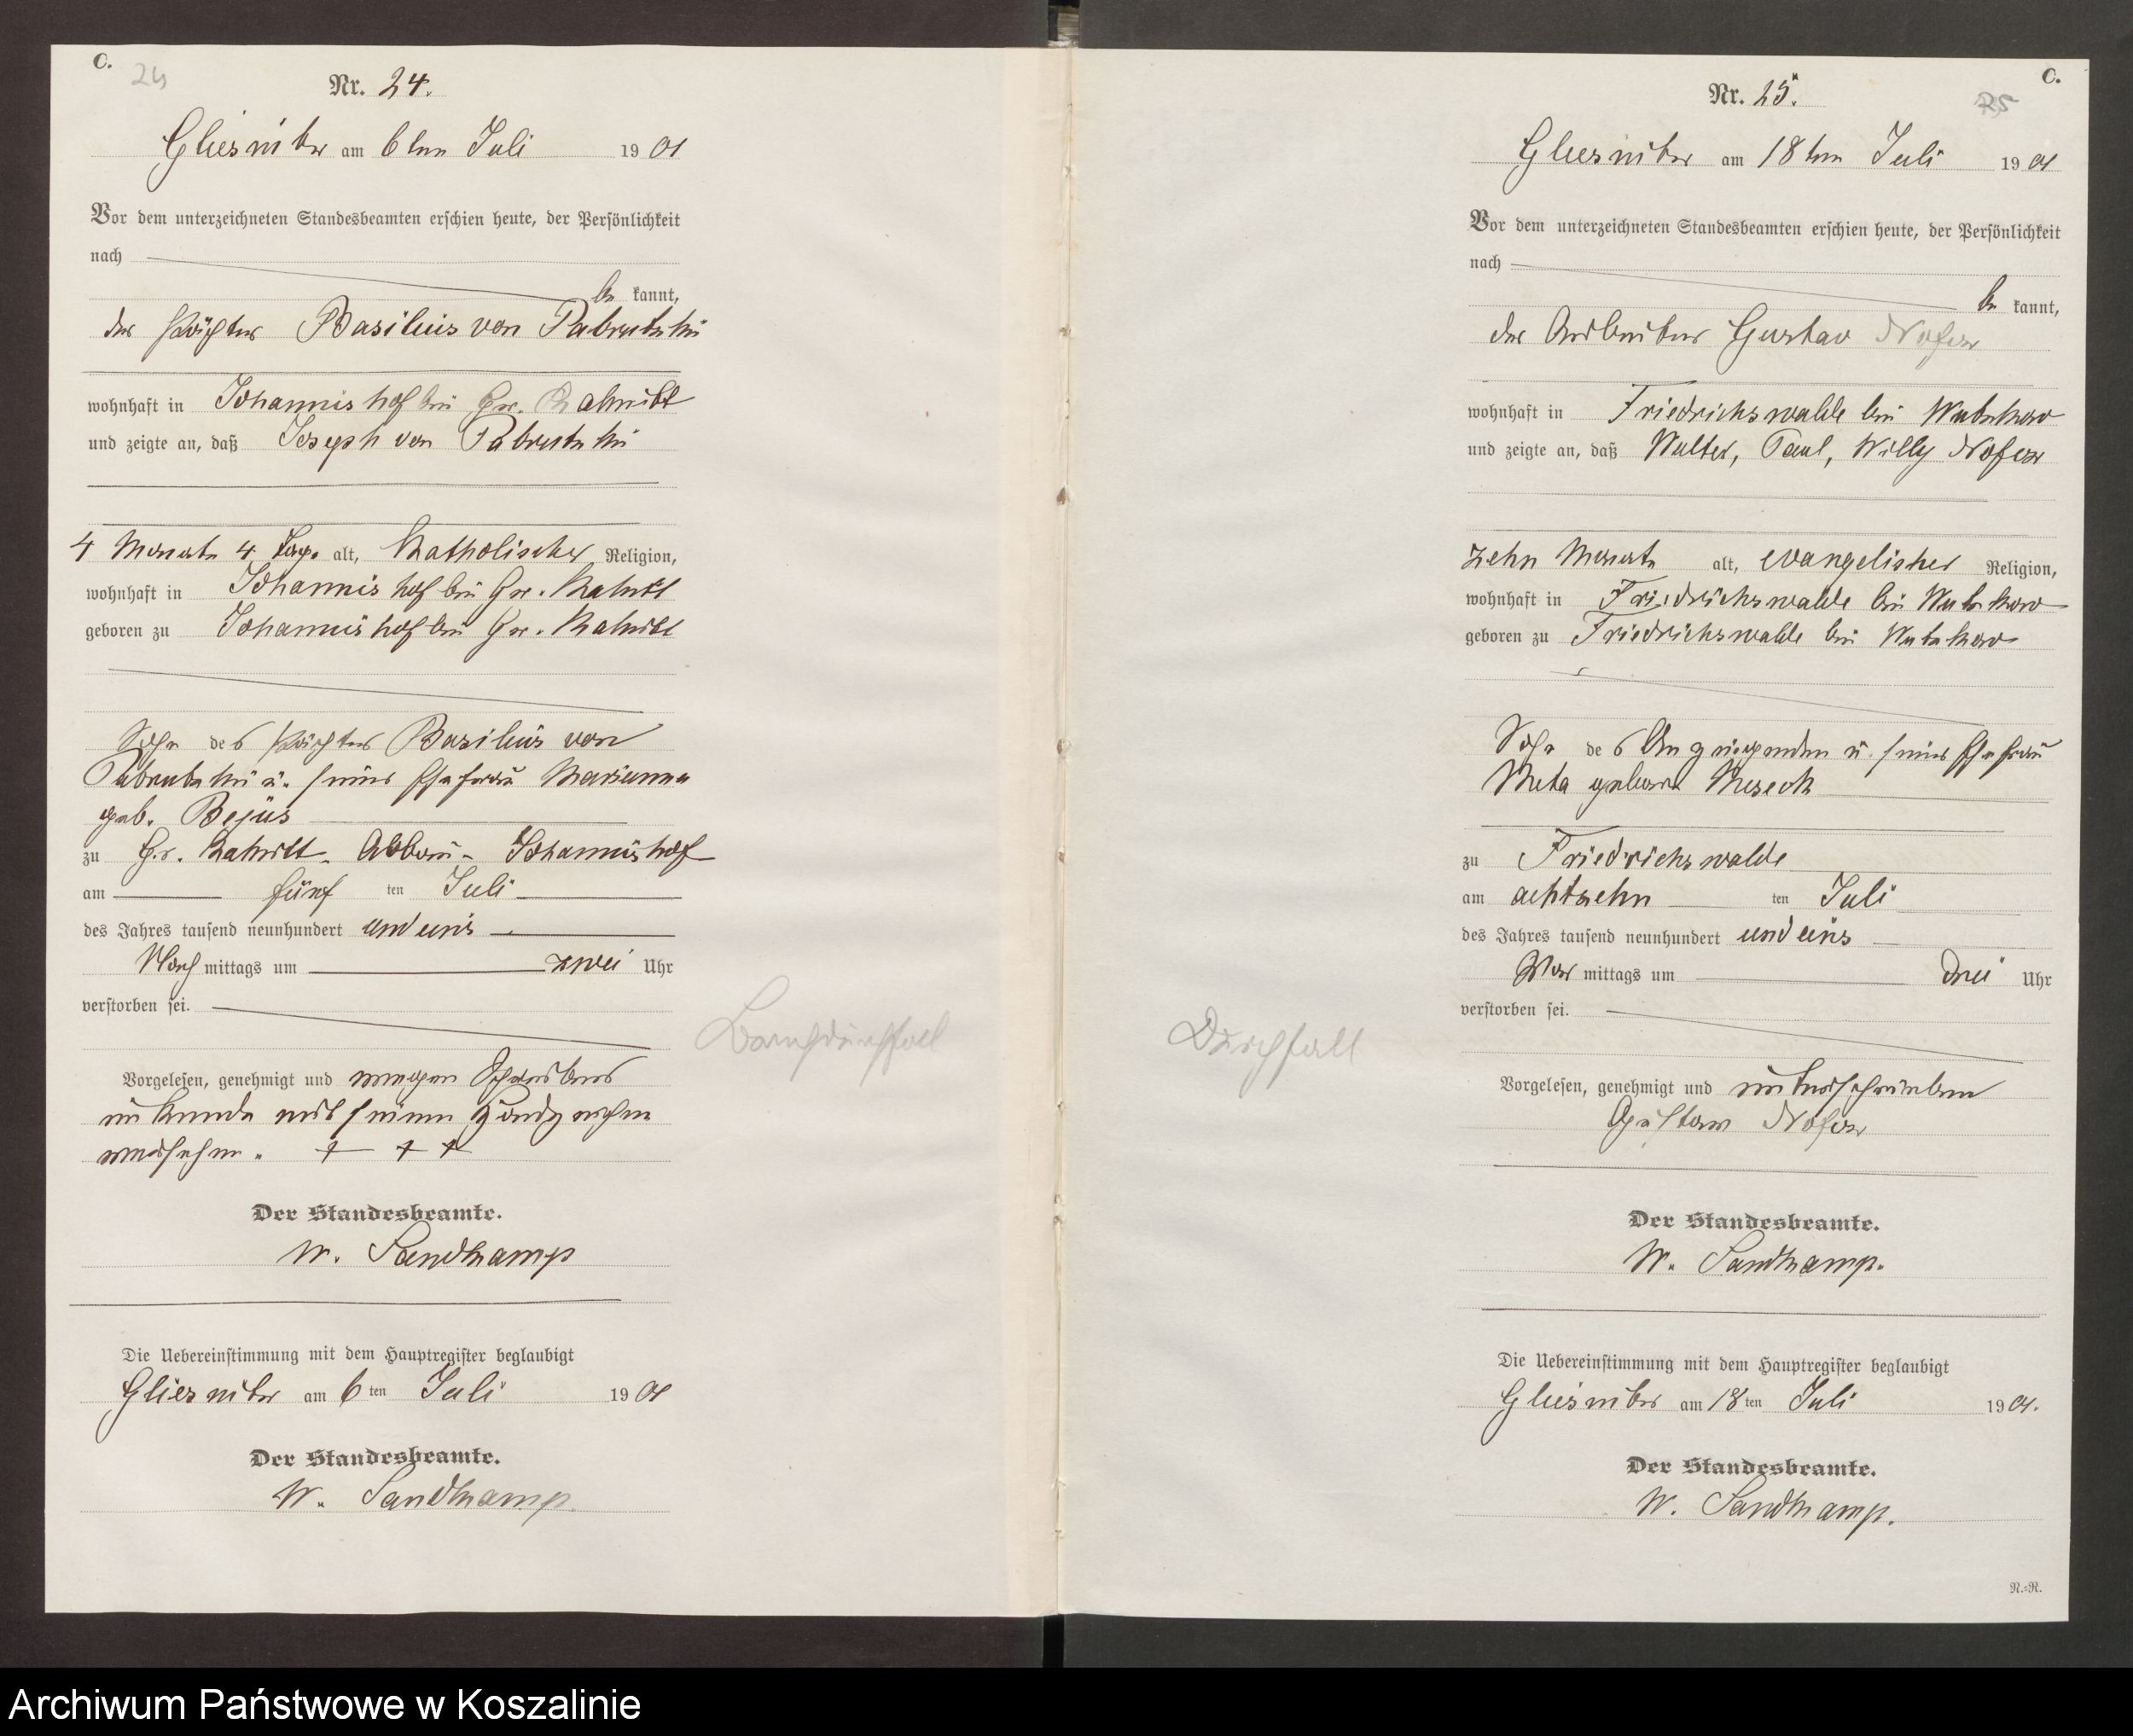 C.
24
Nr. 24.
Gliesnitz am 6ten Juli 1901
Vor dem unterzeichneten Standesbeamten erschien heute, der Persönlichkeit
nach
be kannt,
der Pächter Basilius von
wohnhaft in Johannishof bei Gr. Rakitt
und zeigte an, daß Joseph von
4 Monate 4 Tage alt, Katholischer Religion,
wohnhaft in Johannishof bei Gr. Rakitt
geboren zu Johannishof bei Gr. Rakitt
Sohn des Pächters Basilius von
u. seiner Ehefrau Marianna
geb. Bejüs
zu Gr. Rakitt - Abbau - Johannishof
am fünf ten Juli
des Jahres tausend neunhundert und eins
Nach mittags um zwei Uhr
verstorben sei.
Vorgelesen, genehmigt und wegen Schreibens
unkunde mit seinem Handzeichen
versehen. + + +
Der Standesbeamte.
W. Sandkamp
Die Uebereinstimmung mit dem Hauptregister beglaubigt
Gliesnitz am 6ten Juli 1901
Der Standesbeamte.
W. Sandkamp.
Brechdurchfall
C.
25
Nr. 25.
Gliesnitz am 18ten Juli 1901
Vor dem unterzeichneten Standesbeamten erschien heute, der Persönlichkeit
nach
be kannt,
der Arbeiter Gustav
wohnhaft in Friedrichswalde bei Wutzkow
und zeigte an, daß Walter, Paul, Willy
zehn Monate alt, evangelischer Religion,
wohnhaft in Friedrichswalde bei Wutzkow
geboren zu Friedrichswalde bei Wutzkow
Sohn des Anzeigenden u. seiner Ehefrau
Meta geborne
zu Friedrichswalde
am achtzehn ten Juli
des Jahres tausend neunhundert und eins
Vor mittags um drei Uhr
verstorben sei.
Durchfall
Vorgelesen, genehmigt und unterschrieben
Gustav
Der Standesbeamte.
W. Sandkamp.
Die Uebereinstimmung mit dem Hauptregister beglaubigt
Gliesnitz am 18ten Juli 1901.
Der Standesbeamte.
W. Sandkamp.
N.-R.
Archiwum Państwowe w Koszalinie